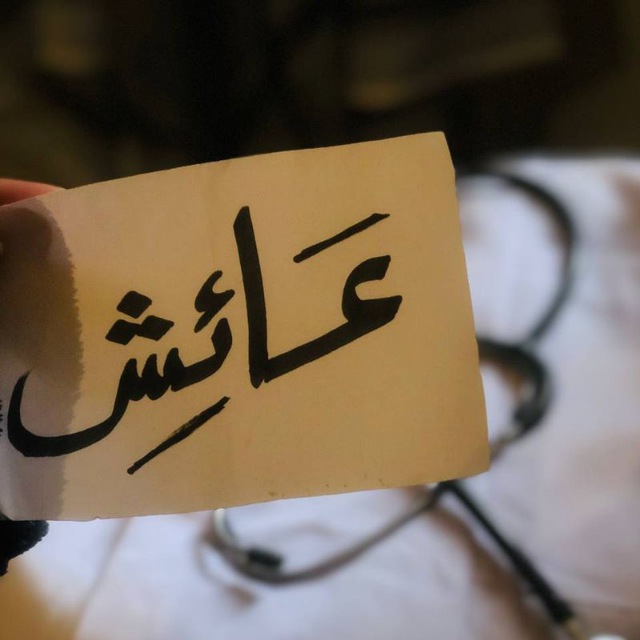 عَائِش